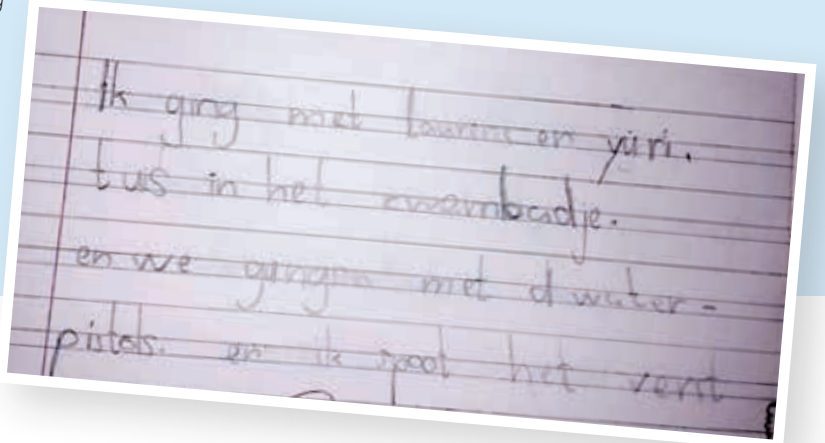 Ik ging met Laurins en yuri.
tuis in het zwembadje.
en we gingen met d water-
pistols. en ik spoot het